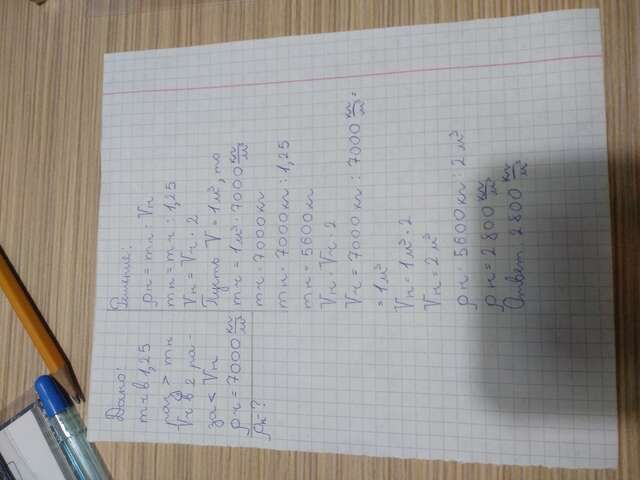 Дано:
mч в 1,25
раз > mк
Vч в 2 ра-
за < Vк
ρч = 7000 кг/м³
ρк - ?
Решение:
ρк = mк : Vк
mк = mч : 1,25
Vк = Vч · 2
Пусть V = 1м³, то
mч = 1м³ · 7000 кг/м³
mч = 7000кг
mк = 7000кг : 1,25
mк = 5600кг
Vк = Vч · 2
Vч = 7000кг : 7000 кг/м³ =
= 1м³
Vк = 1м³ · 2
Vк = 2м³
ρк = 5600кг : 2м³
ρк = 2800 кг/м³
Ответ: 2800 кг/м³